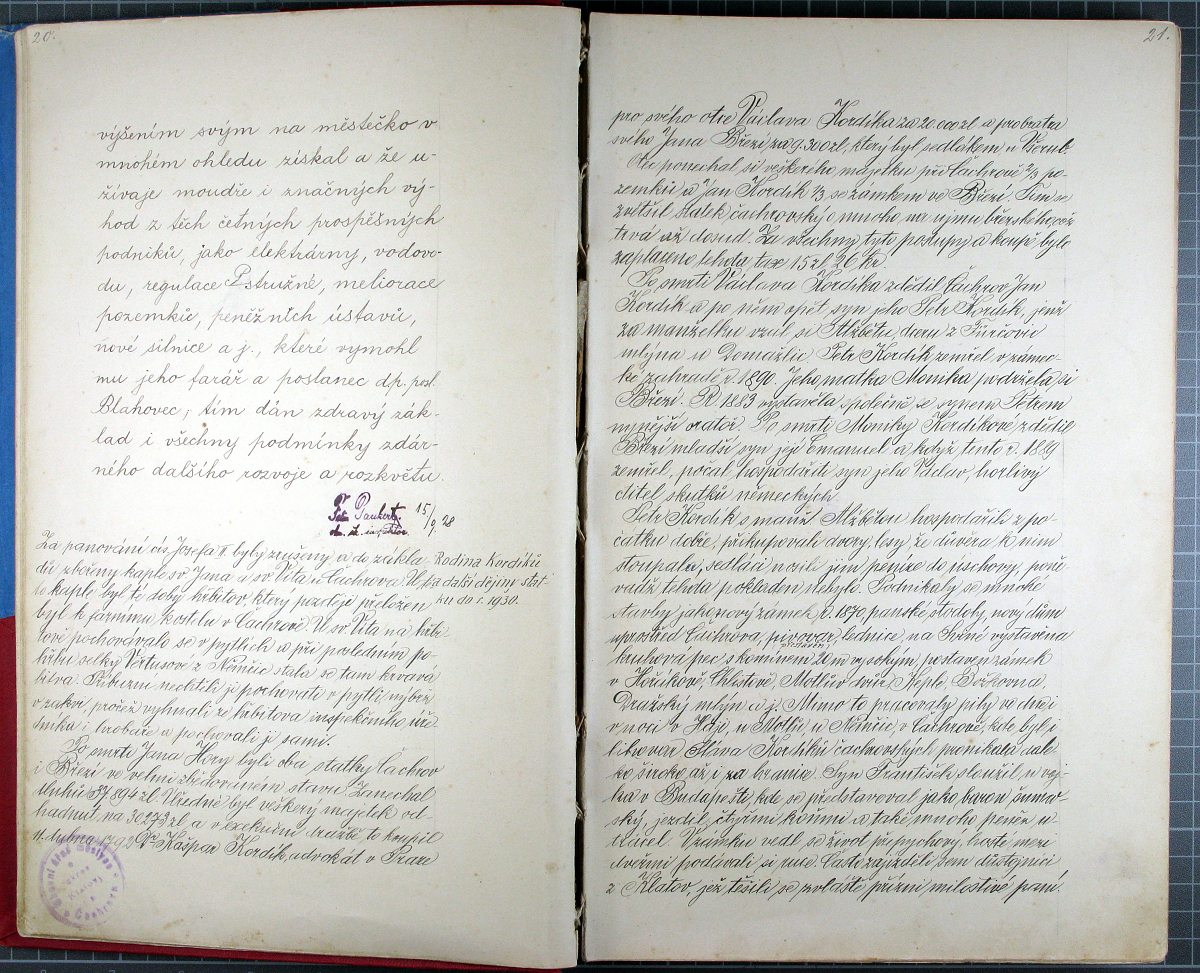 20.
výšením svým na městečko v
mnohém ohledu získal a že u-
žívaje moudře i značných vý-
hod z těch četných prospěšných
podniků, jako elektrárny, vodovo-
du, regulace Pstružné, meliorace
pozemků, peněžních ústavů,
nové silnice a j., které vymohl
mu jeho farář a poslanec dp. posl.
Blahovec; tím dán zdravý zák-
lad i všechny podmínky zdár-
ného dalšího rozvoje a rozkvětu.
15/9 28
Za panování cís. Josefa II byly zrušeny a do zákla-
dů zbořeny kaple sv. Jana a sv. Víta u Čachrova. U té-
to kaple byl té doby hřbitov, který později přeložen
byl k farnímu kostelu v Čachrově. U sv. Víta na hřbi-
tově pochovávalo se v pytlích a při posledním po-
hřbu selky Vértusové z Němčic stala se tam krvavá
bitva. Příbuzní nechtěli ji pochovati v pytli, nýbrž
v rakvi, pročež vyhnali ze hřbitova inspekčního úře-
dníka i hrobaře a pochovali ji sami.
Rodina Kordíků
a další dějiny stat-
ku do r. 1930.
Po smrti Jana Hory byli oba statky Čachrov
i Březí ve velmi zbědovaném stavu. Zanechal
dluhů 37.194 zl. Úředně byl veškerý majetek od-
hadnut na 30273 zl a v exekuční dražbě to koupil
11. dubna 1792 Dr. Kašpar Kordík, advokát v Praze
21.
pro svého otce Václava Kordíka za 20.000 zl a pro bratra
svého Jana Březí za 9.300 zl, který byl sedlákem u
Otec ponechal si veškerého majetku při Čachrově 2/3 po-
zemků a Jan Kordík 1/3 se zámkem ve Březí. Tím se
zvětšil statek čachrovský o mnoho na újmu břežského, což
trvá až dosud. Za všechny tyto postupy a koupě bylo
zaplaceno tehda tax 15 zl 26 kr.
Po smrti Václava Kordíka zdědil Čachrov Jan
Kordík a po něm opět syn jeho Petr Kordík, jenž
za manželku vzal si Alžbětu, dceru z
mlýna u Domažlic. Petr Kordík zemřel v zámec-
ké zahradě r. 1890. Jeho matka Monika podržela si
Březí. R. 1883 vystavěla společně se synem Petrem
nynější oratoř. Po smrti Moniky Kordíkové zdědil
Březí mladší syn její Emanuel a když tento r. 1889
zemřel, počal hospodařiti syn jeho Václav, horlivý
ctitel skutků německých.
Petr Kordík s manž. Alžbětou hospodařili z po-
čátku dobře, přikupovali dvory, lesy, že důvěra k nim
stoupala, sedláci nosili jim peníze do úschovy, poně-
vadž tehda pokladen nebylo. Podnikaly se mnohé
stavby jako nový zámek r. 1870, panské stodoly, nový dům
uprostřed Čachrova, pivovar přestavěn, lednice, na Svině vystavěna
kruhová pec s komínem 20 m vysokým, postaven zámek
v Hořákově, Chlístově, Motlův dvůr, Keple, Božkovna,
Dražský mlýn a j. Mimo to pracovaly pily ve dne i
v noci v Háji, u Motlů, u Němčic, v Čachrově, kde byl i
lihovar. Sláva Kordíků čachrovských pronikala dale-
ko široko až i za hranice. Syn František sloužil u voj-
ska v Budapešti, kde se představoval jako baron šumav-
ský, jezdil čtyřmi koňmi a také mnoho peněz u-
trácel. V zámku vedl se život přepychový, hosté mezi
dveřmi podávali si ruce. Častí zajížděli sem důstojníci
z Klatov, jež těšili se zvláště přízni milostivé paní.